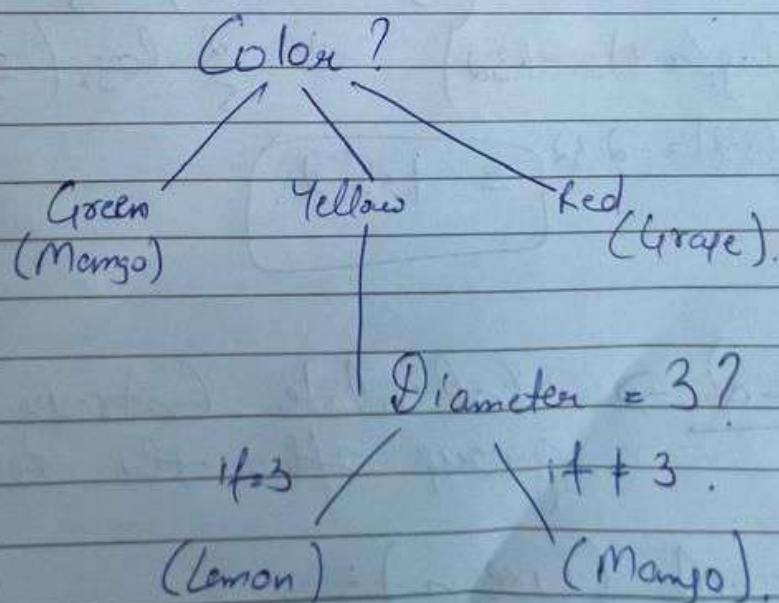 Color ?
Green Yellow Red
(Mango) (Grape).
Diameter = 3 ?
if=3 if ≠ 3 .
(Lemon) (Mango).